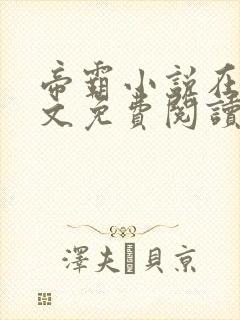 帝霸小説在
文免費閱讀
澤夫 貝京